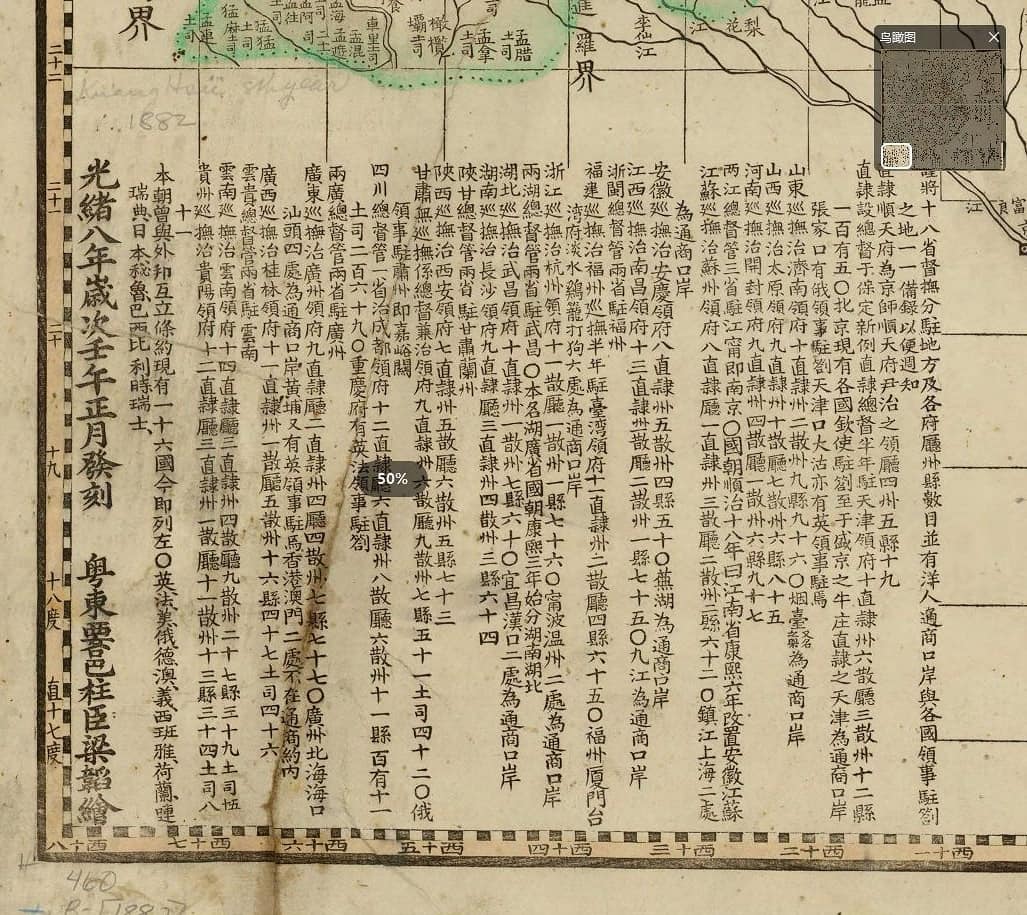 鸟瞰图
謹將十八省督撫分駐地方及各府廳州縣數目並有洋人通商口岸與各國領事駐劄
之地一一備錄以便週知
直隸順天府為京師順天府尹治之領廳四州五縣十九
直隸設總督于保定新例直隸總督半年駐天津領府十直隸州六散廳三散州十二縣
一百有五〇北京現有各國欽使駐劄至于盛京之牛庄直隸之天津為通商口岸
張家口有俄領事駐劄天津口大沽亦有英領事駐焉
山東巡撫治濟南領府十直隸州二散州九縣九十六〇烟臺又名之罘為通商口岸
山西巡撫治太原領府九直隸州十散廳七散州六縣八十五
河南巡撫治開封領府九直隸州四散廳一散州六縣九十七
兩江總督管三省駐江甯即南京〇國朝順治十八年曰江南省康熙六年改置安徽江蘇
江蘇巡撫治蘇州領府八直隸廳一直隸州三散廳二散州三縣六十二〇鎮江上海二處
為通商口岸
安徽巡撫治安慶領府八直隸州五散州四縣五十〇蕪湖為通商口岸
江西巡撫治南昌領府十三直隸州一散廳二散州一縣七十五〇九江為通商口岸
浙閩總督管兩省駐福州
福建巡撫治福州巡撫半年駐臺灣領府十一直隸州二散廳四縣六十五〇福州厦門台
湾府淡水鷄籠打狗六處為通商口岸
浙江巡撫治杭州領府十一散廳一散州一縣七十六〇甯波温州二處為通商口岸
兩湖總督管兩省駐武昌〇本名湖廣省國朝康熙三年始分湖南湖北
湖北巡撫治武昌領府十直隸州一散州七縣六十〇宜昌漢口二處為通商口岸
湖南巡撫治長沙領府九直隸廳三直隸州四散州三縣六十四
陝甘總督管兩省駐甘肅蘭州
陝西巡撫治西安領府七直隸州五散廳六散州五縣七十三
甘肅無巡撫係總督兼治領府九直隸州六散廳九散州七縣五十一土司四十二〇俄
領事駐肅州即嘉峪關
四川總督管一省治成都領府十二直隸廳六直隸州八散廳六散州十一縣百有十一
土司二百六十九〇重慶府有英法領事駐劄
兩廣總督管兩省駐廣州
廣東巡撫治廣州領府九直隸廳二直隸州四廳四散州七縣七十七〇廣州北海海口
汕頭四處為通商口岸黄埔又有英領事駐焉香港澳門二處不在通商約内
廣西巡撫治桂林領府十一直隸州一散廳五散州十六縣四十七土司四十六
雲貴總督管兩省駐雲南
雲南巡撫治雲南領府十四直隸廳三直隸州四散廳九散州二十七縣三十九土司伍
貴州巡撫治貴陽領府十二直隸廳三直隸州一散廳十一散州十三縣三十四土司八
十一
本朝曾與外邦互立條約現有一十六國今即列左〇英法美俄德澳義西班雅荷蘭嗹
瑞典日本秘魯巴西比利時瑞士
光緒八年歲次壬午正月發刻 粤東 邑柱臣梁韜繪
Kuang Hsü 8th year
1882
50%
界
羅界
李仙江
梨花江
車里土司
孟拿土司
孟腊土司
橄欖壩土司
二十二
二十一
二十
十九
十八度
直十七度
八十西
七十西
六十西
五十西
四十西
三十西
二十西
一十西
460